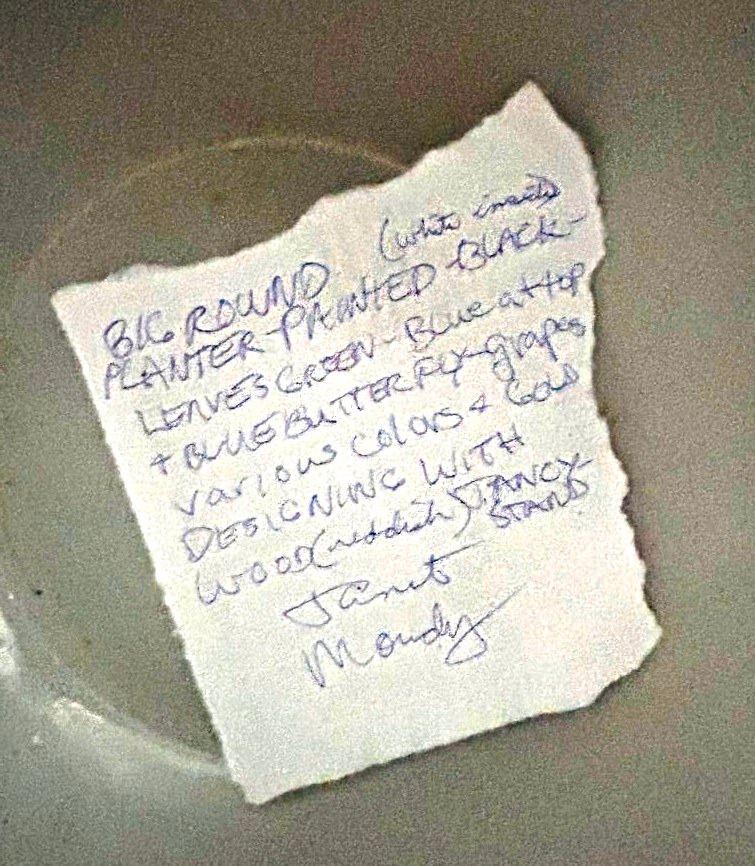 (white inside)
BIG ROUND
PLANTER-PAINTED-BLACK-
LEAVES GREEN-Blue at top
+ BLUE BUTTERFLY-grapes
various colors + Gold
DESIGNING WITH
WOOD (reddish) FANCY
STAND
Janet
Moudy